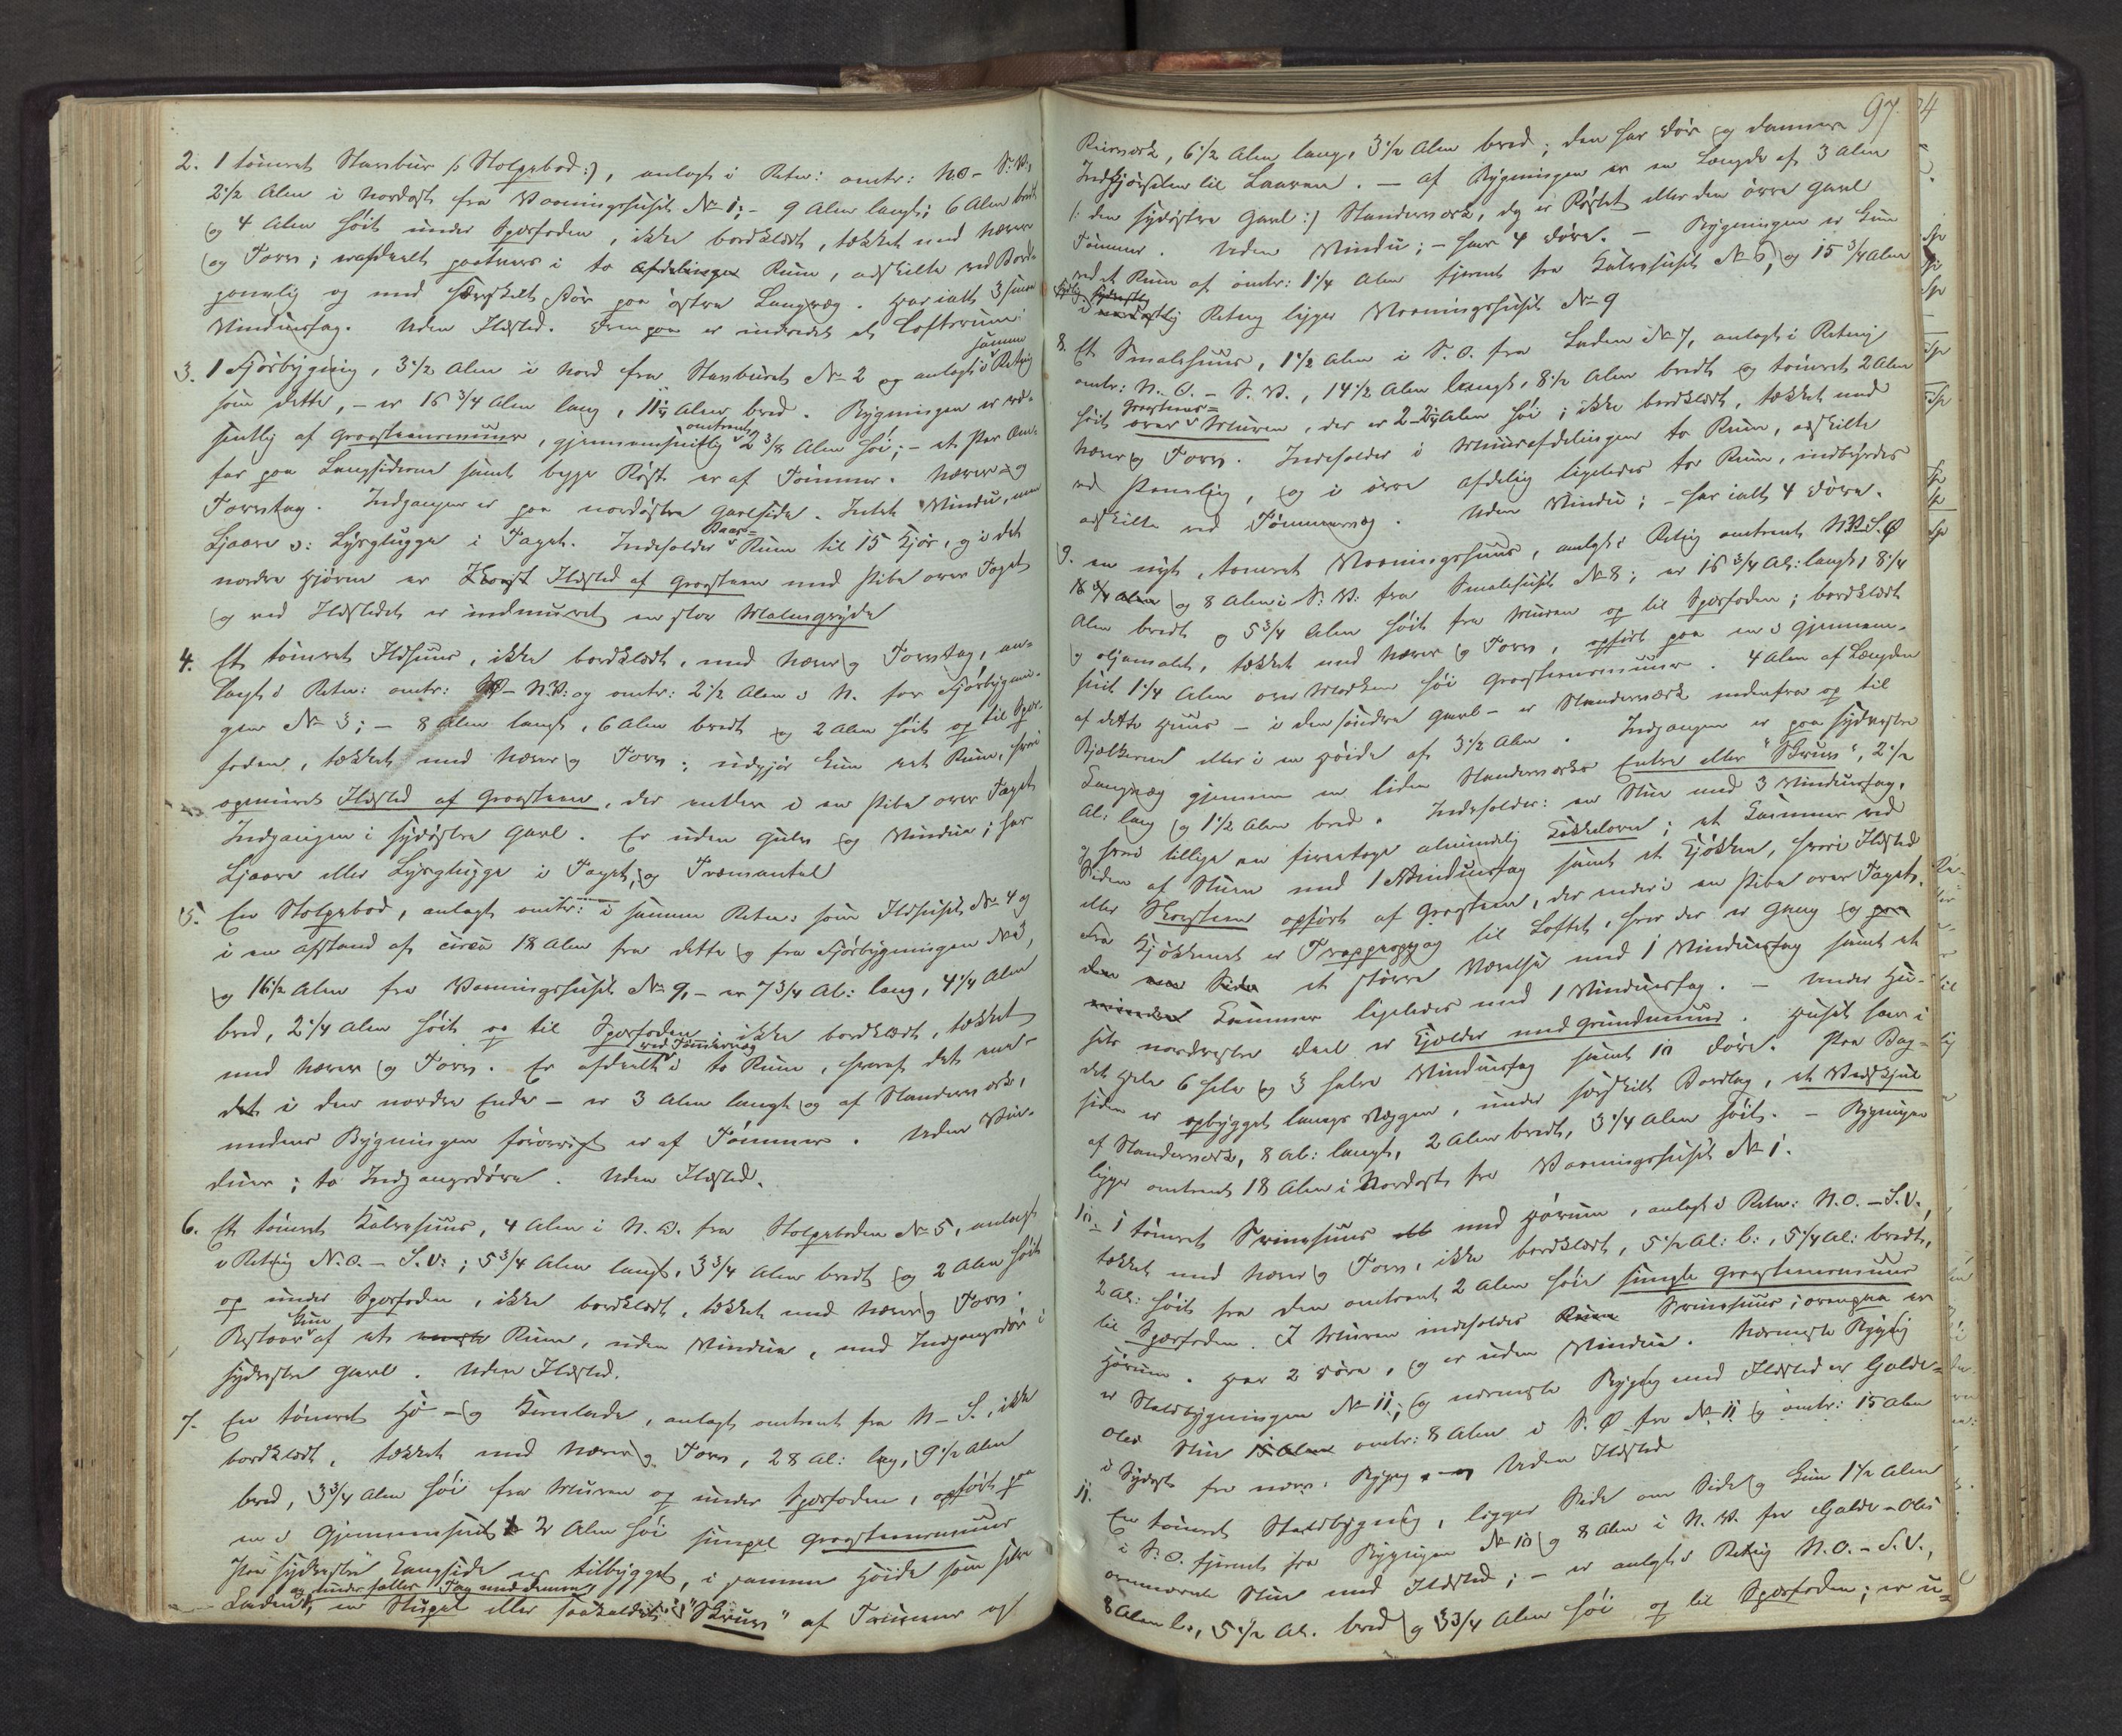 2. 1 tömret Stavbur (: Stolpebod:), anlagt i Retn: omtr: NO - S.V,
2 1/2 Alen i Nordost fra Vaaningshuset No 1; - 9 Alen langt, 6 Alen bredt
og 4 Alen höit under Sperfoden, ikke bordklædt, tækket med Næver
og Torv; er afdeelt i to Afdelinger Rum, adskilte ved Bord-
panelig og med særskilt Dör paa östre Langvæg. Har ialt 3 smaa
Vinduesfag. Uden Ildsted. Ovenpaa er indredet et Loftsrum.
3. 1 Fjösbygnig, 3 1/2 Alen i Nord fra Stavburet No 2 og anlagt i samme Retnig
som dette, - er 15 3/4 Alen lang, 11 1/4 Alen bred. Bygningen er væ-
sentlig af Graasteensmuur, gjennemsnitlig omtrent 2 3/8 Alen höi; - et Par Om-
far paa Langsiderne samt begge Röst er af Tömmer. Næver og
Torvtag. Indgangen er paa nordöstre Gavlside. Intet Vindue, men
Ljaare ɔ: Lysglugge i Taget. Indeholder Baas-Rum til 15 Kjör, og i det
nordre Hjörne er Ildsted af Graasteen med Pibe over Taget
og ved Ildstedet er indmuret en stor Malmgryde
4. Et tömret Ildhuus, ikke bordklædt, med Næver og Torvtag, an-
lagt i Retn: omtr: SO - N.V: og omtr: 2 1/2 Alen i N. for Fjösbygnin-
gen No 3; - 8 Alen langt, 6 Alen bredt og 2 Alen höit op til Sper-
foden, tækket med Næver og Torv; udgjör kun eet Rum, hvori
opmuret Ildsted af Graasteen, der ender i en Pibe over Taget
Indgangen i sydöstre Gavl. Er uden Gulv og Vindue; har
Ljaare eller Lysglugge i Taget, og Trævantul
5. En Stolpebod, anlagt omtr: i samme Retn: som Ildhuset No 4 og
i en Afstand af circa 18 Alen fra dette og fra Fjösbygningen No 3,
og 16 1/2 Alen fra Vaaningshuset No 9, - er 7 3/4 Al: lang, 4 1/4 Alen
bred, 2 1/4 Alen höit op til Sperfoden, ikke bordklædt, tækket
med Næver og Torv. Er afdeelt ved Tömmervæg i to Rum, hvoraf det ene -
det i den nordre Ende - er 3 Alen langt og af Standerværk,
medens Bygningen forövrigt er af Tömmer. Uden Vin-
duer; to Indgangsdöre. Uden Ildsted.
6. Et tömret Kalvehuus, 4 Alen i N.O. fra Stolpeboden No 5, anlagt
i Retnig N.O. - S.V.; 5 3/4 Alen langt, 3 3/4 Alen bredt og 2 Alen höit
op under Sperfoden, ikke bordklædt, tækket med Næver og Torv.
Bestaar kun af et Rum, uden Vindue, med Indgangsdör i
sydvestre Gavl. Uden Ildsted.
7. En tömret Hö- og Kornlade, anlagt omtrent fra N - S., ikke
bordklædt, tækket med Næver og Torv, 28 Al: lang, 9 1/2 Alen
bred, 3 3/4 Alen höi fra Muren op under Sperfoden, opfört paa
en i Gjennemsnit 2 Alen höi simpel Graasteensmuur
Paa sydvestre Langside er tilbygget, i samme Höide som selve
Laden og under fælles Tag med denne, en Skugel eller saakaldet "Skruv" af Tömmer og
97.
Riisværk, 6 1/2 Alen lang, 3 1/2 Alen bred; den har Dör og danner
Indkjörselen til Laaven. - Af Bygningen er en Længde af 3 Alen
(: den sydöstre Gavl:) Standerværk, dog er Röstet eller den övre Gavl
Tömmer. Uden Vindue; - har 4 Döre. - Bygningen er kun
ved et Rum af omtr: 1 1/4 Alen fjernet fra Kalvehuset No 6, og 15 3/4 Alen
i sydvestlig Retnig ligger Vaaningshuset No 9
8. Et Smalehuus, 1 1/2 Alen i S.O. fra Laden No 7, anlagt i Retnig
omtr: N.O. - S.V., 14 1/2 Alen langt, 8 1/2 Alen bredt og tömret 2 Alen
höit over Graasteens-Muren, der er 2 - 2 1/4 Alen höi; ikke bordklædt, tækket med
Næver og Torv. Indeholder i Muurafdelingen to Rum, adskilte
ved Panelig, og i övre Afdelig ligeledes to Rum, indbyrdes
adskilte ved Tömmervæg. Uden Vindue; - har ialt 4 Döre.
9. en nyt, tömret Vaaningshuus, anlagt i Retnig omtrent NV-S.Ø
16 3/4 Alen og 8 Alen i S.V. fra Smalehuset No 8; er 15 3/4 Al: langt, 8 1/4
Alen bredt og 5 3/4 Alen höit fra Muren op til Sperfoden; bordklædt
og oljemalet, tækket med Næver og Torv, opfört paa en i Gjennem-
snit 1 1/4 Alen over Marken höi Graasteensmuur. 4 Alen af Længden
af dette Huus - i den söndre Gavl - er Standerværk nedenfra op til
Bjælkerne eller i en Höide af 3 1/2 Alen. Indgangen er paa sydvestre
Langvæg gjennem en liden Standerværks Entre eller "Skruv", 2 1/2
Al: lang og 1 1/2 Alen bred. Indeholder: en Stue med 3 Vinduesfag,
og hvori tillige en fireetages almindelig Kakkelovn; et Kammer ved
Siden af Stuen med 1 Vinduesfag samt et Kjökken, hvori Ildsted
eller Skorsteen opfört af Graasteen, der ender i en Pibe over Taget.
Fra Kjökkenet er Trappeopgang til Loftet, hvor der er Gang og paa
den ene Side et större Værelse med 1 Vinduesfag samt et
mindre Kammer ligeledes med 1 Vinduesfag. - Under Hu-
sets nordvestre Deel er Kjelder med Grundmuur. Huset har i
det Hele 6 hele og 3 halve Vinduesfag samt 10 Döre. Paa Bag-
siden er opbygget langs Væggen, under særskilt Bordtag, et Vedskjul
af Standerværk, 8 Al: langt, 2 Alen bredt, 3 1/4 Alen höit. - Bygningen
ligger omtrent 18 Alen i Nordost fra Vaaningshuset No 1.
10. 1 tömret Sviinehuus med Hörum, anlagt i Retn: N.O. - S.V.,
tækket med Næver og Torv, ikke bordklædt, 5 1/2 Al: l:, 5 1/4 Al: bredt,
2 Al: höit fra den omtrent 2 Alen höie simple Graasteensmuur
til Sperfoden. I Muren indeholdes Sviinehuus; ovenpaa er
Hörum. Har 2 Döre, og er uden Vindue. Nærmeste Bygnig
er Staldbygningen No 11; og nærmeste Bygnig med Ildsted er Galde-
Oles Stue omtr: 8 Alen i S.Ø fra No 11 og omtr: 15 Alen
i Sydost fra nærv: Bygnig. Uden Ildsted
11. En tömret Staldbygnig, ligger Side om Side og kun 1 1/2 Alen
i S.O. fjernet fra Bygningen No 10 og 8 Alen i N.V. fra Galde-Oles
ovennævnte Stue med Ildsted; - er anlagt i Retnig N.O. - S.V.,
8 Alen l., 5 1/2 Al. bred og 3 3/4 Alen höi op til Sperfoden; er u-